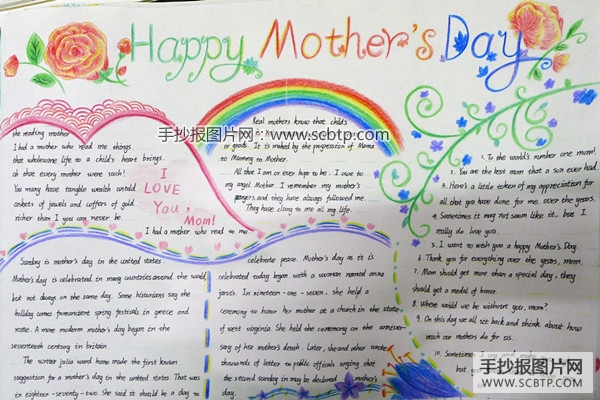 Happy Mother's Day
the reading mother
I had a mother who read me things
that wholesome life to a child's heart brings.
oh that every mother were such!
You may have tangible wealth untold
caskets of jewels and coffers of gold
richer than I you can never be.
I had a mother who read to me
I
LOVE
You,
Mom!
Real mothers know that child's
or grads. It is maked by the progression of Mama
to Mommy to Mother.
All that I am or ever hope to be, I owe to
my angel Mother. I remember my mother's
prayers and they have always followed me.
They have clung to me all my life.
手抄报图片网:www.scbtp.com
1. To the world's number one mom!
2. You are the best mom that a son ever had.
3. Here's a little token of my appreciation for
all that you have done for me over the years.
4. Sometimes it may not seem like it, but I
really do love you.
5. I want to wish you a happy Mother's Day.
6. Thank you for everything over the years, mom.
7. Mom should get more than a special day, they
should get a medal of honor.
8. Where would we be without you, mom?
9. On this day we all set back and think about how
much our mothers do for us.
10. Sometimes I
but
Sunday is mother's day in the united states.
Mother's day is celebrated in many countries around the world
but not always on the same day. Some historians say the
holiday comes from ancient spring festivals in greece and
rome. A more modern mother's day began in the
seventeenth century in britain.
The writer julia ward howe made the first known
suggestion for a mother's day in the united states. That was
in eighteen-seventy-two. She said it should be a day to
celebrate peace. Mother's day as it is
celebrated today began with a woman named anna
jarvis. In nineteen-one-seven, she held a
ceremony to honor her mother at a church in the state
of west virginia. She held the ceremony on the anniver-
sary of her mother's death. Later, she and other wrote
thousands of letter to public officials urging that
the second sunday in may be declared mother's
day.
手抄报图片网
SCBTP.COM